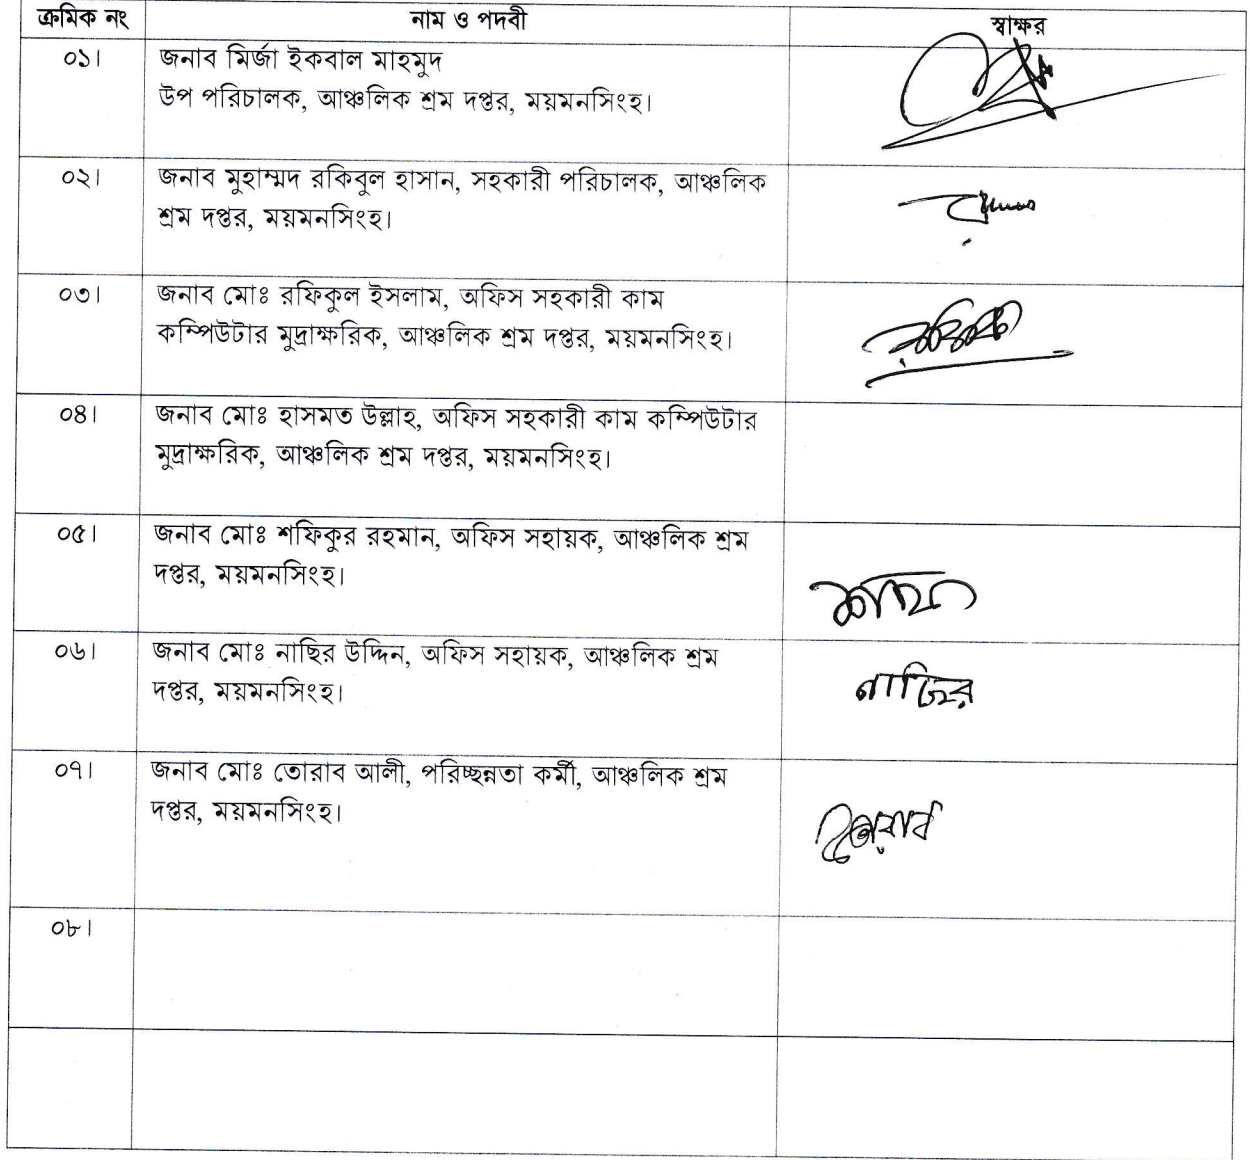 ক্রমিক নং নাম ও পদবী স্বাক্ষর
০১। জনাব মির্জা ইকবাল মাহমুদ
উপ পরিচালক, আঞ্চলিক শ্রম দপ্তর, ময়মনসিংহ।
০২। জনাব মুহাম্মদ রকিবুল হাসান, সহকারী পরিচালক, আঞ্চলিক
শ্রম দপ্তর, ময়মনসিংহ।
০৩। জনাব মোঃ রফিকুল ইসলাম, অফিস সহকারী কাম
কম্পিউটার মুদ্রাক্ষরিক, আঞ্চলিক শ্রম দপ্তর, ময়মনসিংহ।
০৪। জনাব মোঃ হাসমত উল্লাহ, অফিস সহকারী কাম কম্পিউটার
মুদ্রাক্ষরিক, আঞ্চলিক শ্রম দপ্তর, ময়মনসিংহ।
০৫। জনাব মোঃ শফিকুর রহমান, অফিস সহায়ক, আঞ্চলিক শ্রম
দপ্তর, ময়মনসিংহ।
০৬। জনাব মোঃ নাছির উদ্দিন, অফিস সহায়ক, আঞ্চলিক শ্রম
দপ্তর, ময়মনসিংহ।
নাছির
০৭। জনাব মোঃ তোরাব আলী, পরিচ্ছন্নতা কর্মী, আঞ্চলিক শ্রম
দপ্তর, ময়মনসিংহ।
তোরাব
০৮।